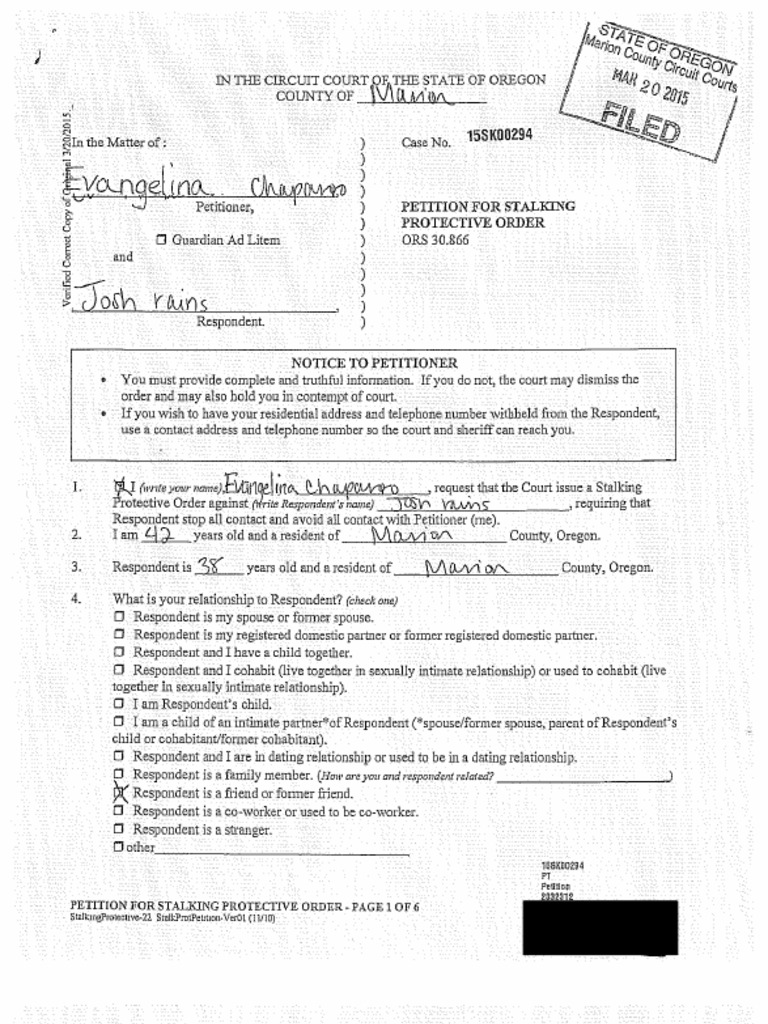 STATE OF OREGON
Marion County Circuit Courts
MAR 20 2015
FILED
IN THE CIRCUIT COURT OF THE STATE OF OREGON
COUNTY OF Marion
Verified Correct Copy of Original 3/20/2015
In the Matter of :
Evangelina Chaparro
Petitioner,
Guardian Ad Litem
and
Josh rains
Respondent.
)
)
)
)
)
)
)
)
)
)
)
)
Case No. 15SK00294
PETITION FOR STALKING
PROTECTIVE ORDER
ORS 30.866
NOTICE TO PETITIONER
• You must provide complete and truthful information. If you do not, the court may dismiss the
order and may also hold you in contempt of court.
• If you wish to have your residential address and telephone number withheld from the Respondent,
use a contact address and telephone number so the court and sheriff can reach you.
1. I (write your name), Evangelina Chaparro, request that the Court issue a Stalking
Protective Order against (Write Respondent's name) Josh rains, requiring that
Respondent stop all contact and avoid all contact with Petitioner (me).
2. I am 42 years old and a resident of Marion County, Oregon.
3. Respondent is 38 years old and a resident of Marion County, Oregon.
4. What is your relationship to Respondent? (check one)
Respondent is my spouse or former spouse.
Respondent is my registered domestic partner or former registered domestic partner.
Respondent and I have a child together.
Respondent and I cohabit (live together in sexually intimate relationship) or used to cohabit (live
together in sexually intimate relationship).
I am Respondent's child.
I am a child of an intimate partner*of Respondent (*spouse/former spouse, parent of Respondent's
child or cohabitant/former cohabitant).
Respondent and I are in dating relationship or used to be in a dating relationship.
Respondent is a family member. (How are you and respondent related? )
Respondent is a friend or former friend.
Respondent is a co-worker or used to be co-worker.
Respondent is a stranger.
other
15SK00294
PT
Petition
2332212
PETITION FOR STALKING PROTECTIVE ORDER - PAGE 1 OF 6
StalkingProtective-22 StalkProtPetition-Ver01 (11/10)